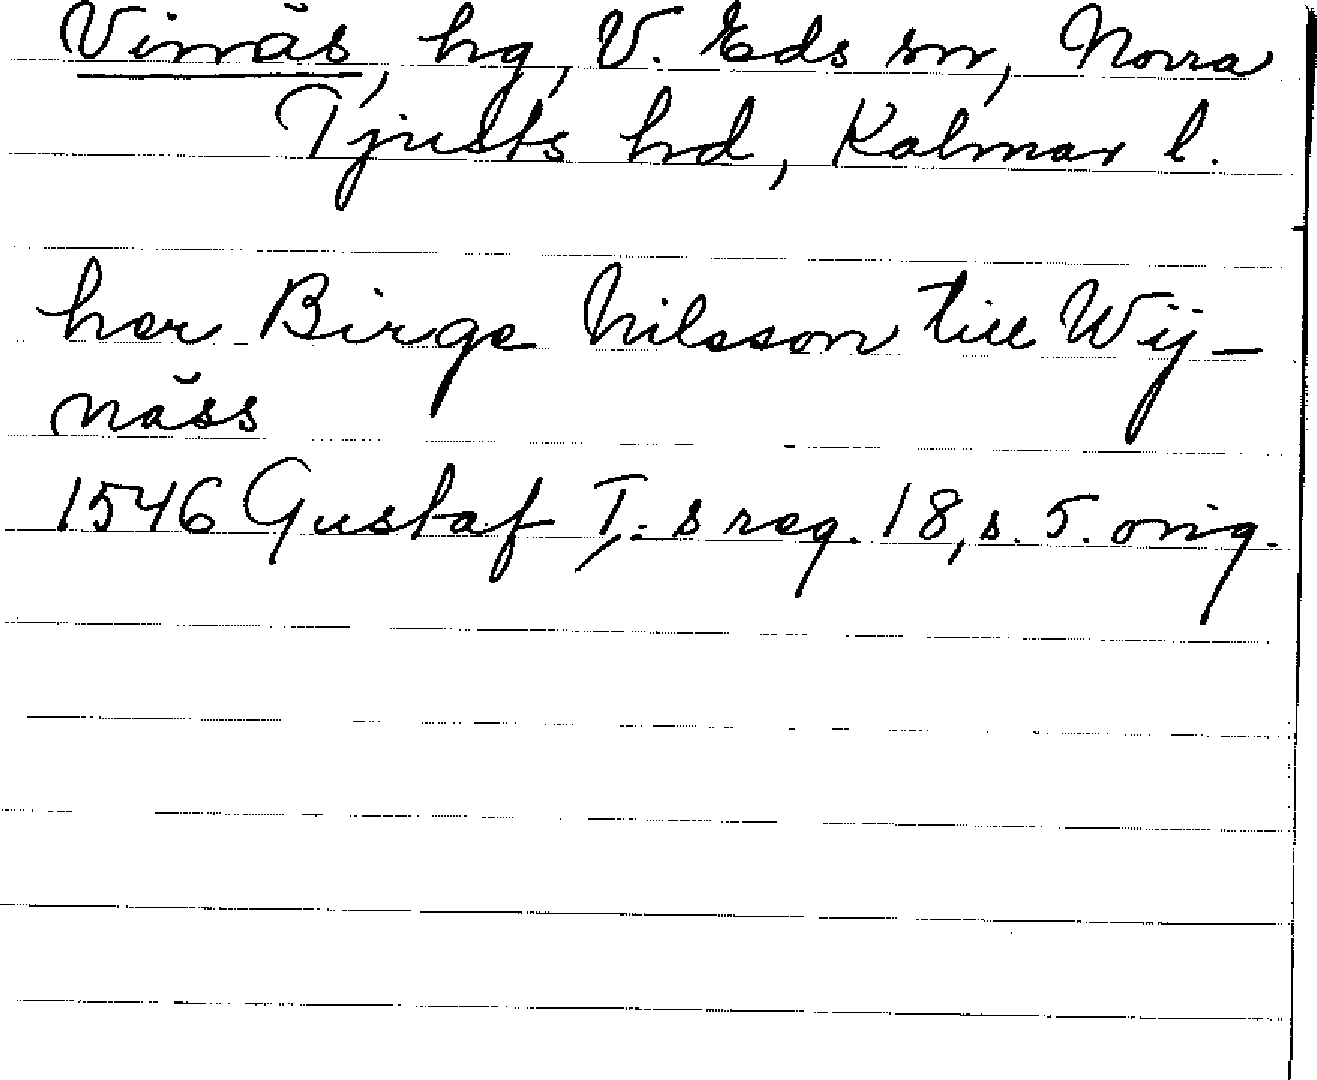 Vinäs, hg, V. Eds sn, Norra
Tjusts hd, Kalmar l.
her Birge Nilsson till Wij-
näss
1546 Gustaf I:s reg. 18, s. 5. orig.